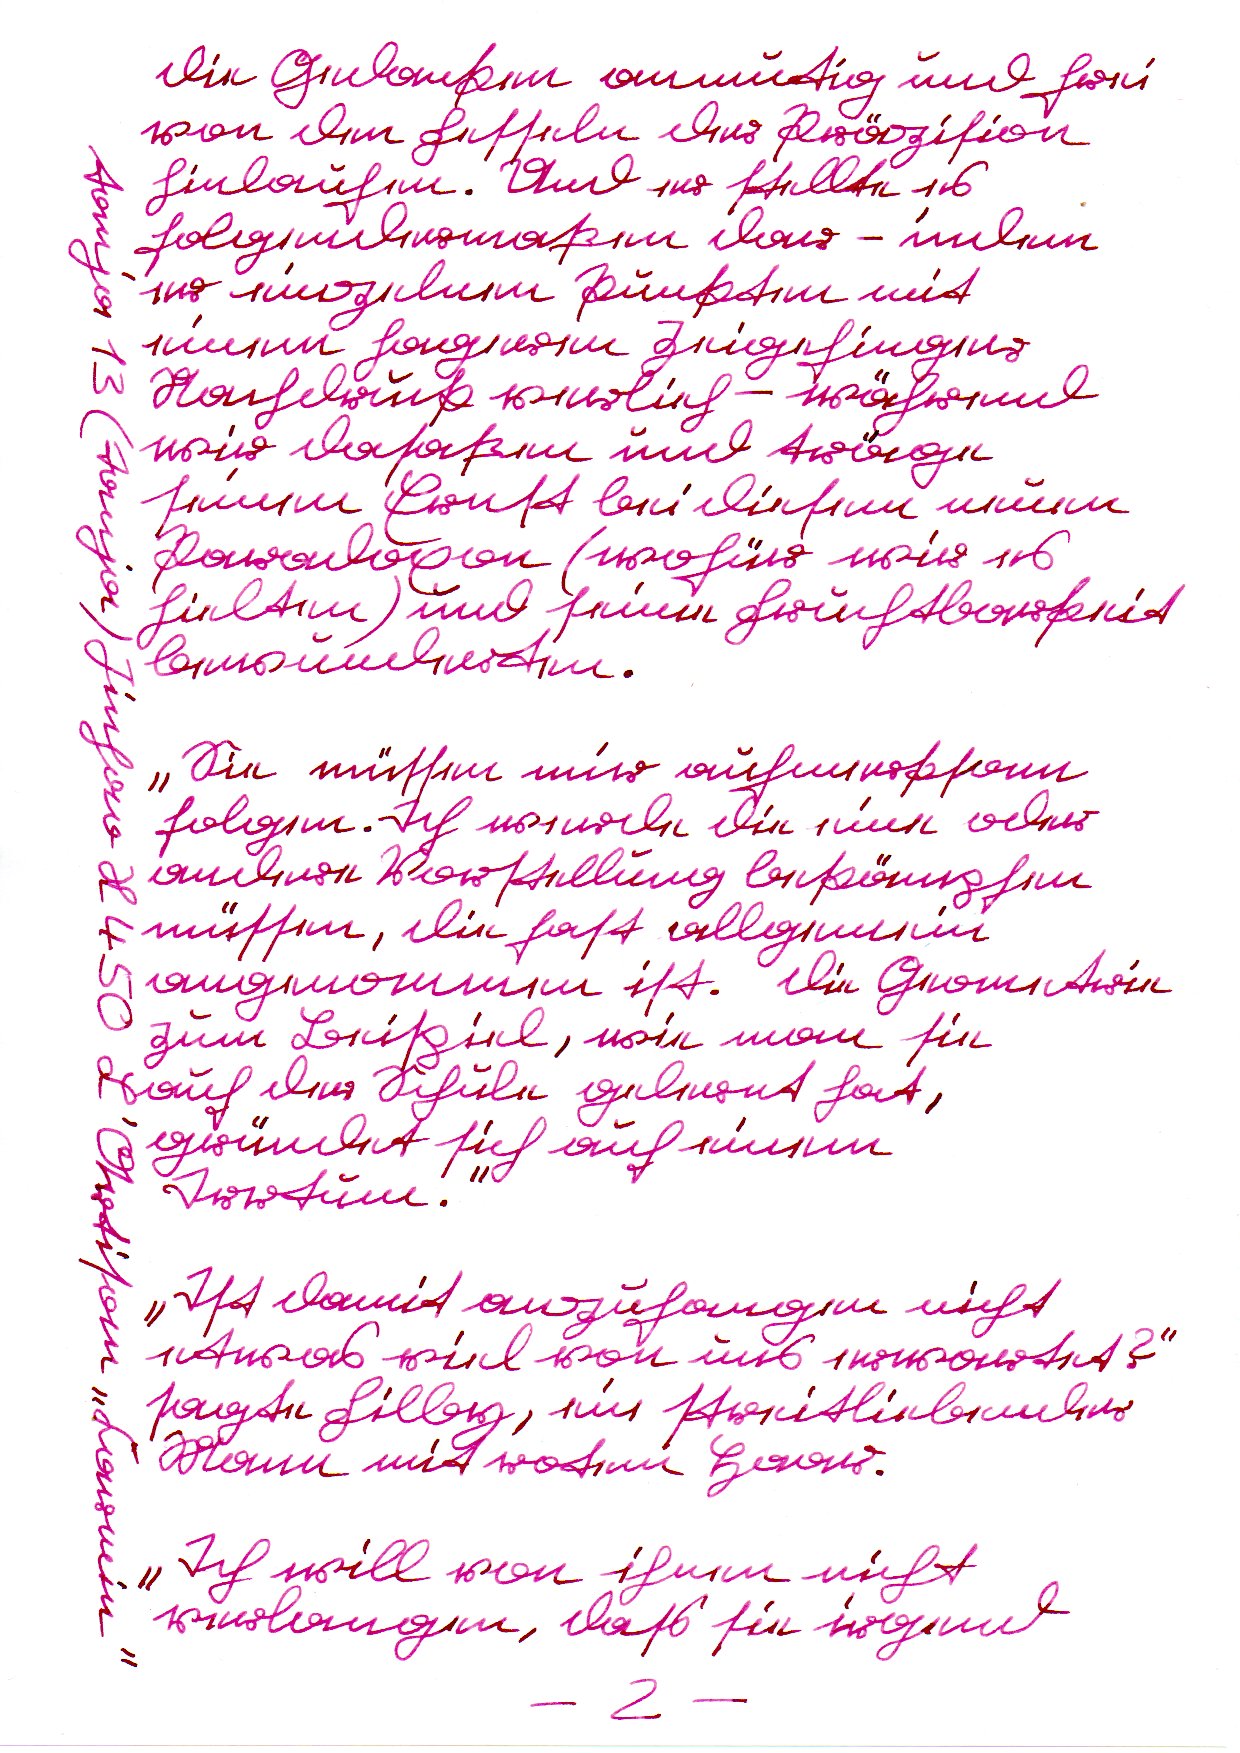 die Gedanken anmutig und frei
von den Fesseln der Präzision
hinlaufen. Und er stellte es
folgendermaßen dar – indem
er einzelnen Punkten mit
einem hageren Zeigefinger
Nachdruck verlieh – während
wir dasaßen und träge
seinen Ernst bei diesem neuen
Paradoxon (wofür wir es
hielten) und seine Fruchtbarkeit
bewunderten.
„Sie müssen mir aufmerksam
folgen. Ich werde die eine oder
andere Vorstellung bekämpfen
müssen, die fast allgemein
angenommen ist. Die Geometrie
zum Beispiel, wie man sie
auf der Schule gelernt hat,
gründet sich auf einen
Irrtum."
„Ist damit anzufangen nicht
etwas viel von uns erwartet?"
sagte Filby, ein streitliebender
Mann mit rotem Haar.
„Ich will von ihnen nicht
verlangen, daß sie irgend
– 2 –
13 (
) Füller
450
"